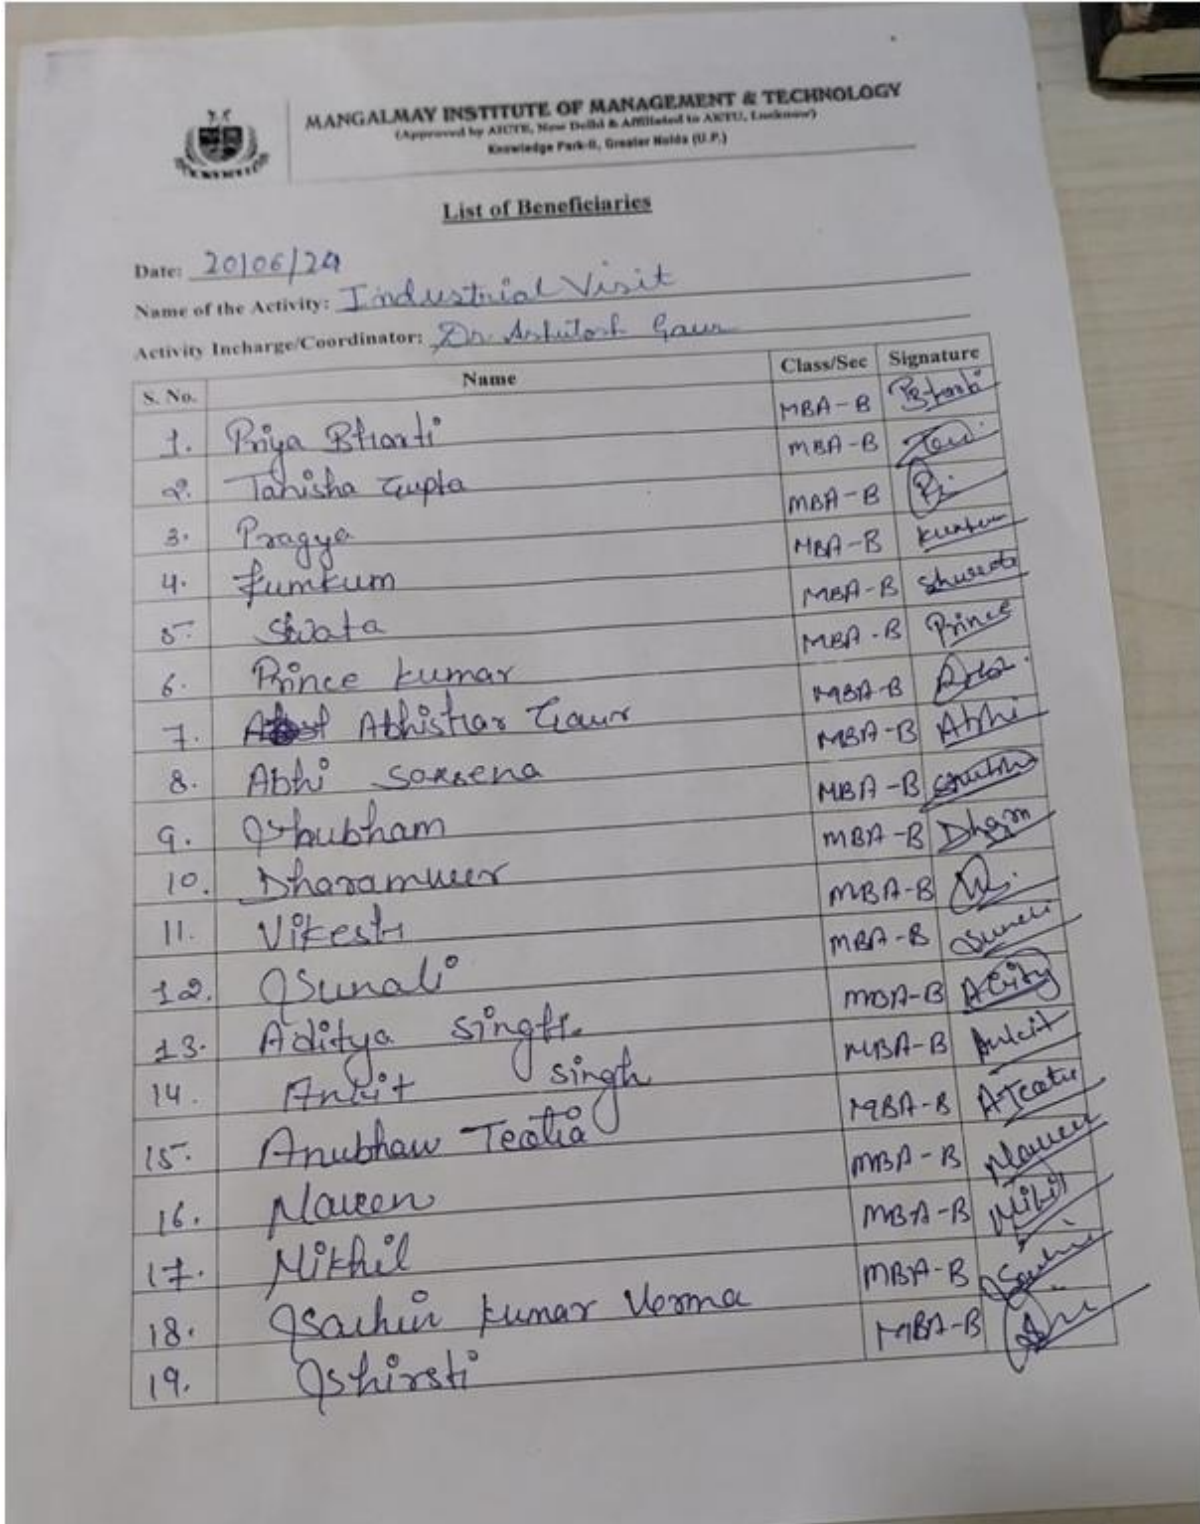 MANGALMAY INSTITUTE OF MANAGEMENT & TECHNOLOGY
(Approved by AICTE, New Delhi & Affiliated to AKTU, Lucknow)
Knowledge Park-II, Greater Noida (U.P.)
List of Beneficiaries
Date: 20/06/24
Name of the Activity: Industrial Visit
Activity Incharge/Coordinator: Dr. Ashutosh Gaur
S. No. Name Class/Sec Signature
1. Priya Bharti MBA-B
2. Tanisha Gupta MBA-B
3. Pragya MBA-B
4. Kumkum MBA-B Kumkum
5. MBA-B
6. Prince Kumar MBA-B Prince
7. Abhishar Gaur MBA-B
8. Abhi Saxsena MBA-B Abhi
9. Shubham MBA-B
10. Dharamveer MBA-B Dharm
11. Vikesh MBA-B
12. Sunali MBA-B
13. Aditya Singh MBA-B
14. Ankit Singh MBA-B Ankit
15. Anubhav Teotia MBA-B
16. Naveen MBA-B Naveen
17. Nikhil MBA-B
18. Sachin Kumar Verma MBA-B
19. Shirsti MBA-B